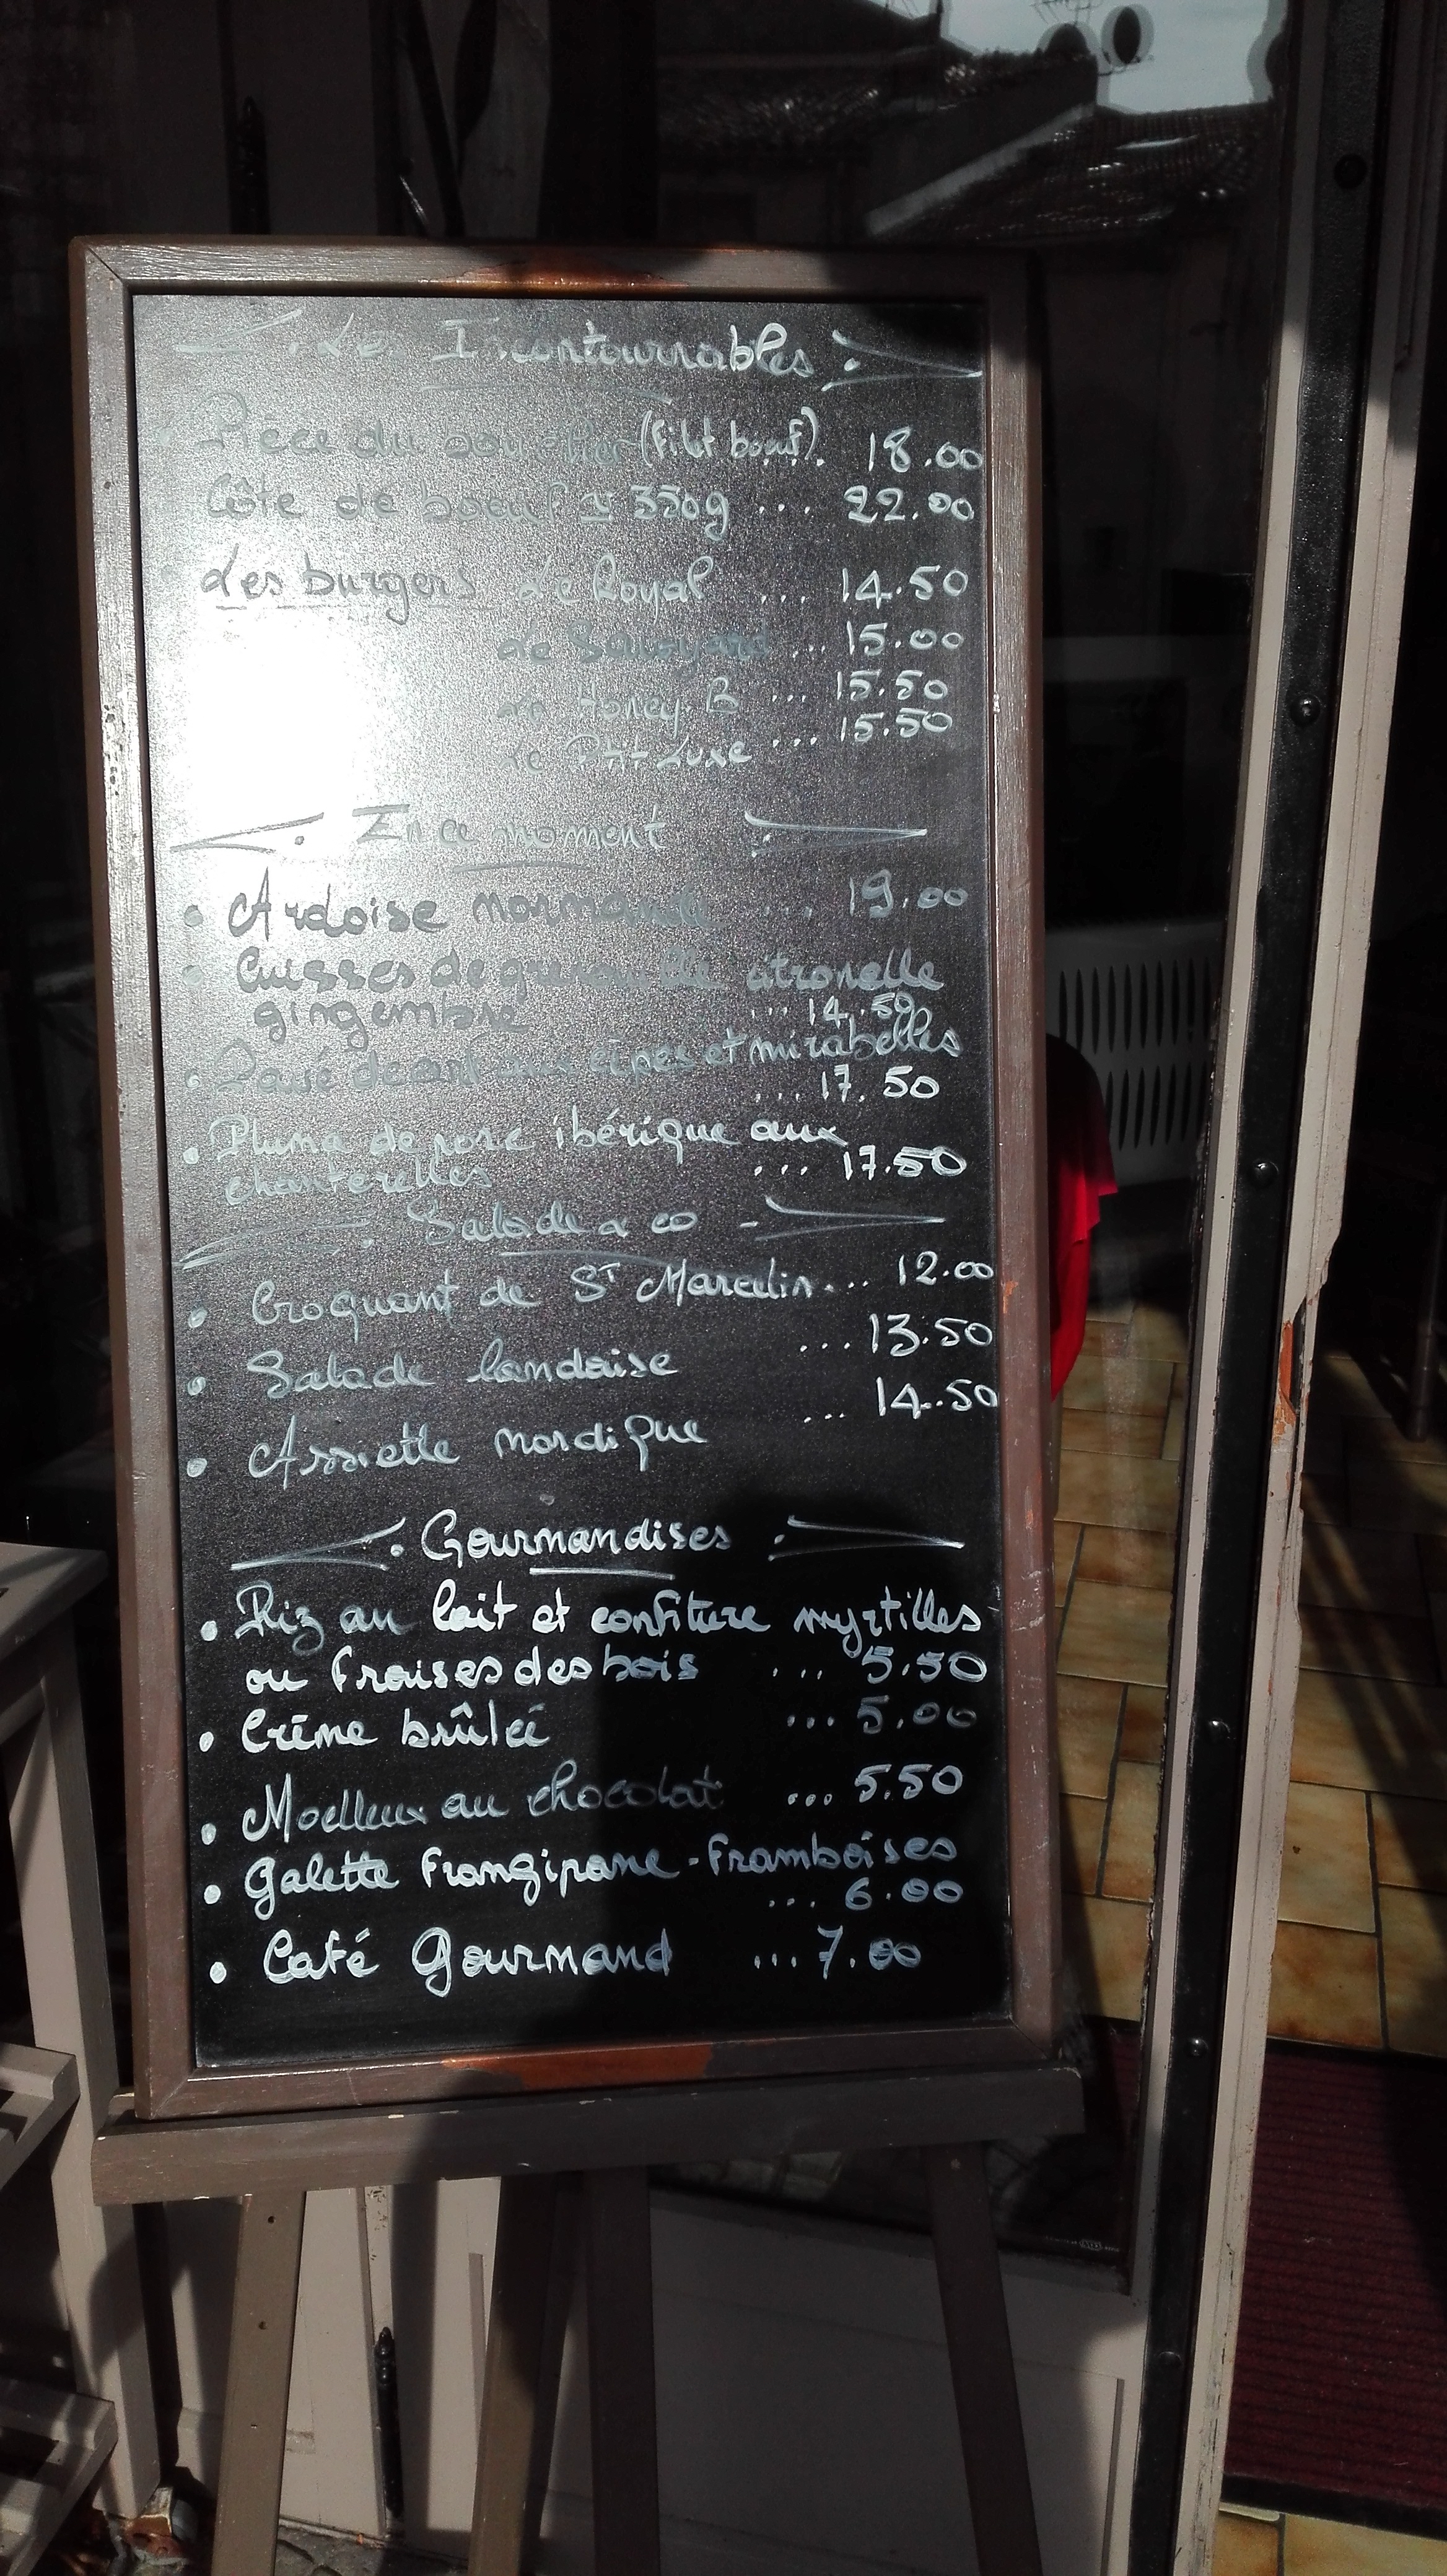 Les Incontournables
Pièce du boucher (filet boeuf). 18.00
Côte de boeuf ± 350g ... 22.00
Les burgers Le Royal ... 14.50
Le Savoyard ... 15.00
Le Honey B ... 15.50
Le Ptit Luxe ... 15.50
En ce moment
• Ardoise normande ... 19.00
• Cuisses de grenouille citronelle
gingembre ... 14.50
• Pavé de cerf aux cèpes et mirabelles
... 17.50
• Pluma de porc ibérique aux
chanterelles ... 17.50
Salade & co
• Croquant de St Marcelin... 12.00
• Salade landaise ... 13.50
• Assiette nordique ... 14.50
Gourmandises
• Riz au lait et confiture myrtilles
ou fraises des bois ... 5.50
• Crème brûlée ... 5.00
• Moelleux au chocolat ... 5.50
• Galette Frangipane - Framboises
... 6.00
• Café Gourmand ... 7.00